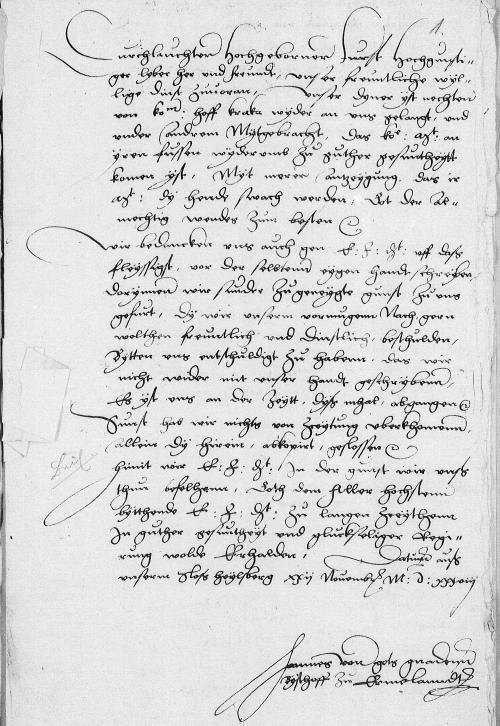 1.
Durchlauchter Hochgeborner Furst Hochgunsti-
ger lyber her und freundt, unser freuntliche wyl-
lige dinst zuuoran, Unser dyner yst nechten
von ko: hoff kraka wyder an uns gelangt, und
under anderem Mytgebracht, das ko: at: an
yren fussen wyderumb zu guther gesuntheytt
komen yst, Myt merer antzeygung, das ir
at: dy hende swach werden, Got der Al-
mechtig wendes zum besten
Wir bedancken uns auch gen E: F: at: uff das
fleyssigst, vor der selbtenn eygen handt schreyben
dorynnen wir sunder zugeneygte gunst zu uns
gespurt, dy wir unserm vormugenn nach gern
wolthen freuntlich und dinstlich beschulden,
Bytten uns entschuldigt zu habenn, das wir
nicht wider mit unser handt geschrybenn,
Es yst uns an der zeytt, dys mhal, abgangen
Sunst hab wir nichts von zeytung uberkhomenn,
allein dy hirein, abkopirt, geslossen
hirmit wir E: F: at: In der gunst wir unss
thun befelhenn, Goth dem Aller hochstenn
bytthende E: F: at: zu langen zceytthenn
In guther gesuntheyt und glucksseliger Regi-
rung wolde Erhalden, Datum auss
unserm Slos heylsberg xxij Nouembr M: d: xxxviij
Joannes von gots gnaden
Byschoff zu Ermelandt